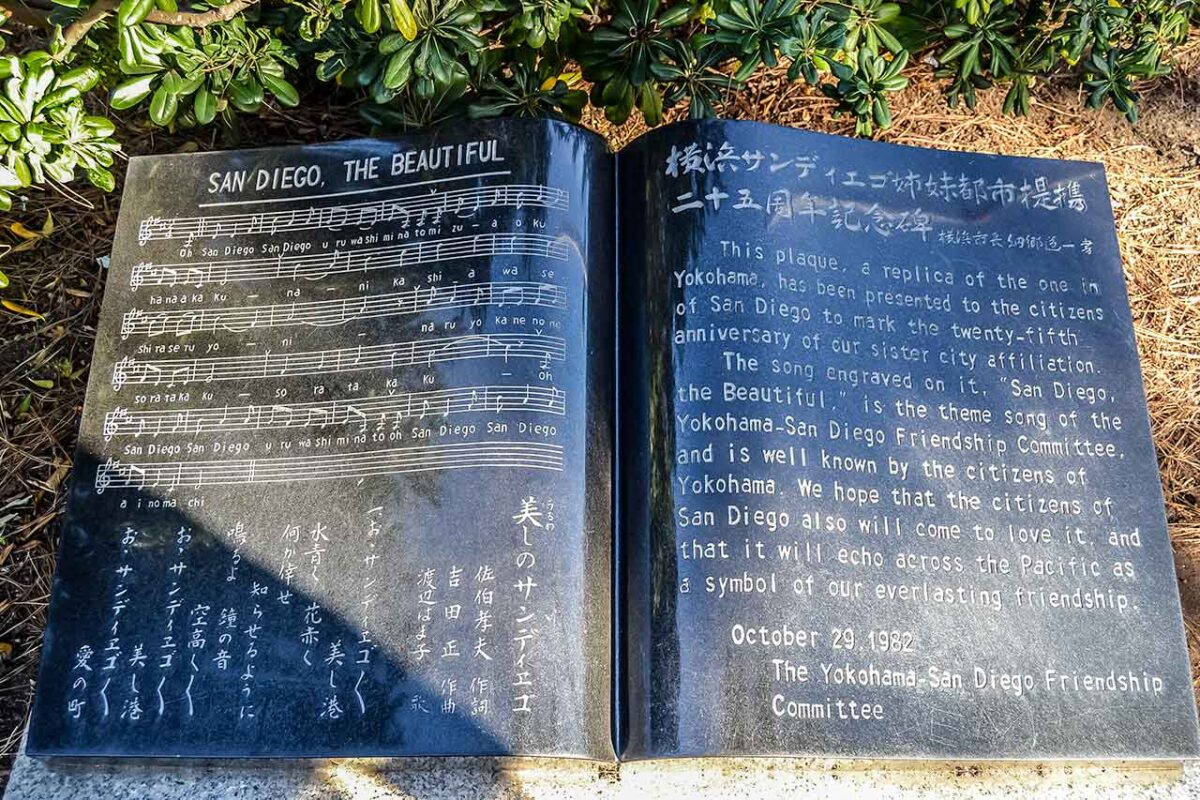 SAN DIEGO, THE BEAUTIFUL
Oh San Diego San Diego u ru wa shi mi na to mi zu - a o ku
ha na a ka ku - na - ni ka shi a wa se
shi ra se ru yo - ni - na ru yo ka ne no ne
so ra ta ka ku - so ra ta ka ku - oh
San Diego San Diego u ru wa shi mi na to oh San Diego San Diego
a i no ma chi
美しのサンディエゴ
うるわ
佐伯孝夫 作詞
吉田正 作曲
渡辺はま子 歌
一、お、サンディエゴ〱
美し港
水青く 花赤く
何か倖せ
知らせるように
鳴るよ 鐘の音
空高く〱
お、サンディエゴ〱
美し港
お、サンディエゴ〱
愛の町
横浜サンディエゴ姉妹都市提携
二十五周年記念碑
横浜市長 細郷道一 書
This plaque, a replica of the one in
Yokohama, has been presented to the citizens
of San Diego to mark the twenty-fifth
anniversary of our sister city affiliation.
The song engraved on it, "San Diego,
the Beautiful," is the theme song of the
Yokohama-San Diego Friendship Committee,
and is well known by the citizens of
Yokohama. We hope that the citizens of
San Diego also will come to love it, and
that it will echo across the Pacific as
a symbol of our everlasting friendship.
October 29.1982
The Yokohama-San Diego Friendship
Committee